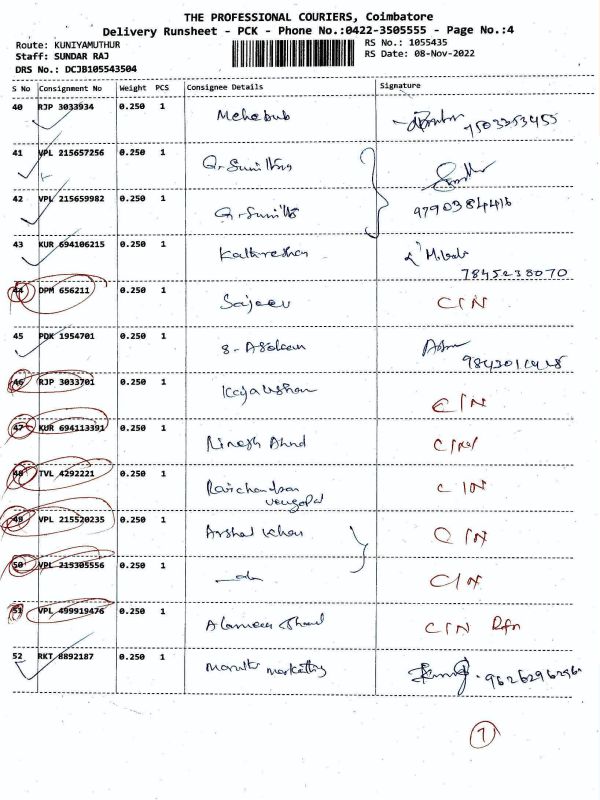 THE PROFESSIONAL COURIERS, Coimbatore
Delivery Runsheet - PCK - Phone No.:0422-3505555 - Page No.:4
Route: KUNIYAMUTHUR RS No.: 1055435
Staff: SUNDAR RAJ RS Date: 08-Nov-2022
DRS No.: DCJB105543504
S No Consignment No Weight PCS Consignee Details Signature
40 RJP 3033934 0.250 1 Mehebub
41 VPL 215657256 0.250 1
42 VPL 215659982 0.250 1
9790384416
43 KUR 694106215 0.250 1
7845238070
44 DPM 656211 0.250 1 Sajeev C/N
45 PDK 1954701 0.250 1
46 RJP 3033701 0.250 1 C/N
47 KUR 694113391 0.250 1 C/N
48 TVL 4292221 0.250 1 Ravichandran C/N
venugopal
49 VPL 215520235 0.250 1 Arshad Khan C/N
50 VPL 215305556 0.250 1 C/N
51 VPL 499919476 0.250 1 C/N
52 RKT 8892187 0.250 1
7